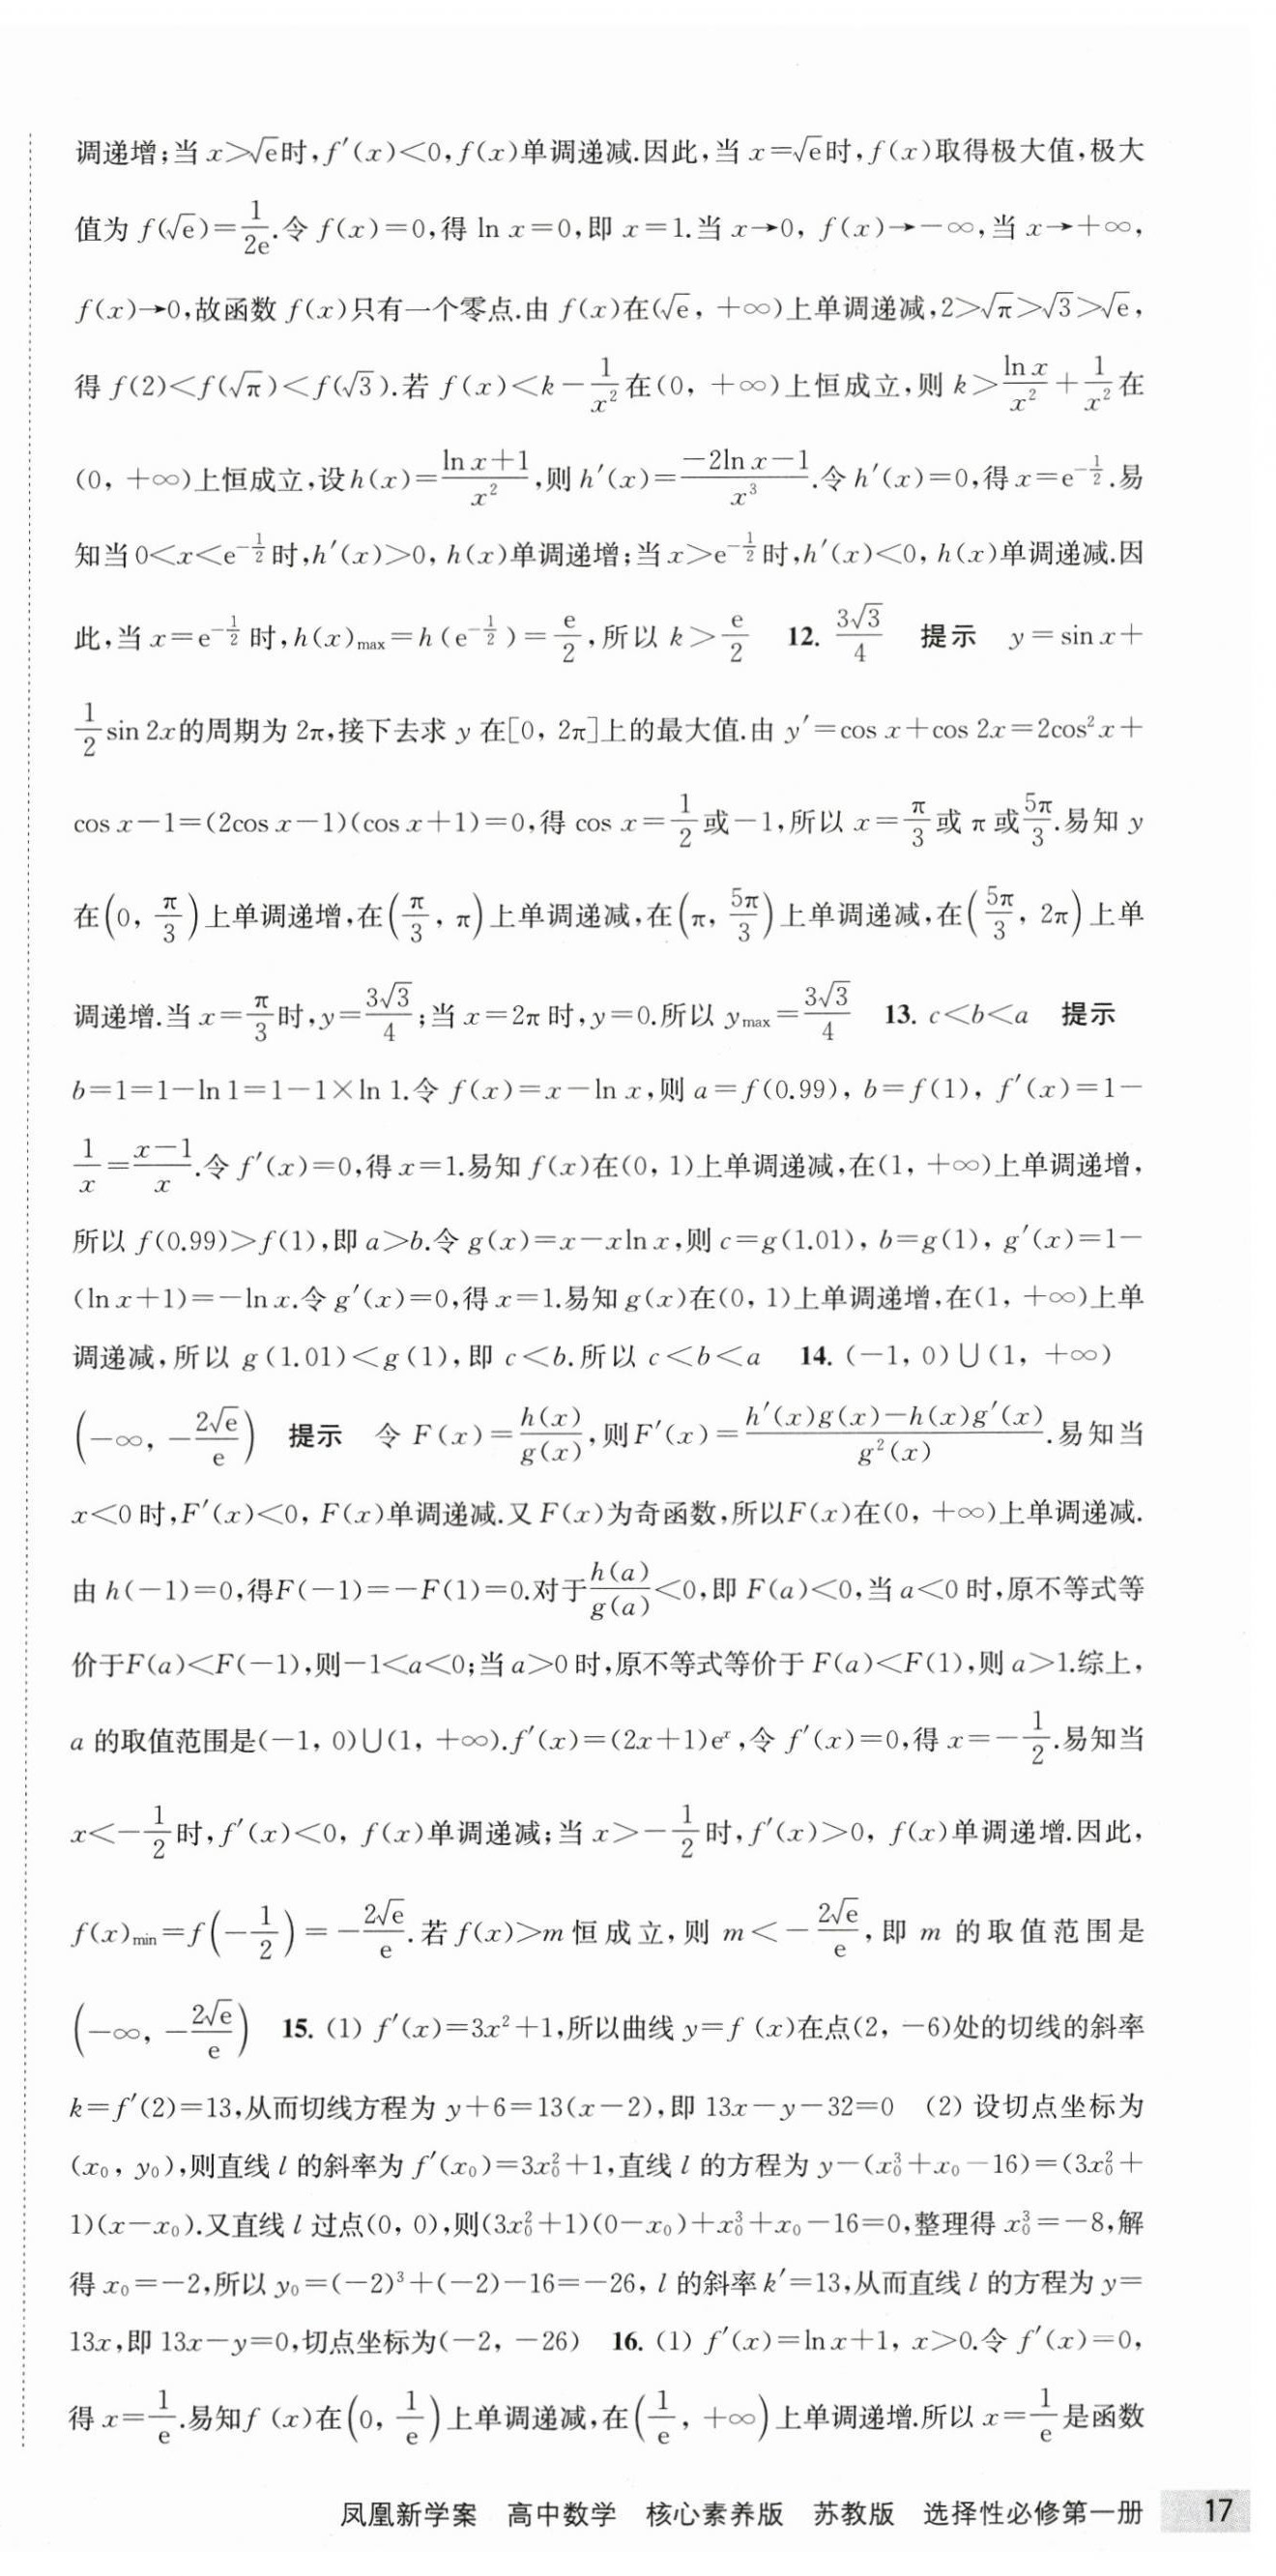 调递增;当 x>√e时,f′(x)<0,f(x)单调递减.因此,当 x=√e时,f(x)取得极大值,极大
值为 f(√e)=1/(2e).令 f(x)=0,得 ln x=0,即 x=1.当 x→0, f(x)→-∞,当 x→+∞,
f(x)→0,故函数 f(x)只有一个零点.由 f(x)在(√e, +∞)上单调递减,2>√π>√3>√e,
得 f(2)<f(√π)<f(√3).若 f(x)<k-1/x²在(0, +∞)上恒成立,则 k>ln x/x²+1/x²在
(0, +∞)上恒成立,设h(x)=(ln x+1)/x²,则 h′(x)=(-2ln x-1)/x³.令 h′(x)=0,得 x=e^(-1/2).易
知当 0<x<e^(-1/2)时,h′(x)>0, h(x)单调递增;当 x>e^(-1/2)时,h′(x)<0, h(x)单调递减.因
此,当 x=e^(-1/2)时,h(x)max=h(e^(-1/2))=e/2,所以 k>e/2 12. 3√3/4 提示 y=sin x+
1/2 sin 2x的周期为 2π,接下去求 y 在[0, 2π]上的最大值.由 y′=cos x+cos 2x=2cos²x+
cos x-1=(2cos x-1)(cos x+1)=0,得 cos x=1/2或-1,所以 x=π/3或 π 或5π/3.易知 y
在(0, π/3)上单调递增,在(π/3, π)上单调递减,在(π, 5π/3)上单调递减,在(5π/3, 2π)上单
调递增.当 x=π/3时,y=3√3/4;当 x=2π 时,y=0.所以 ymax=3√3/4 13. c<b<a 提示
b=1=1-ln 1=1-1×ln 1.令 f(x)=x-ln x,则 a=f(0.99), b=f(1), f′(x)=1-
1/x=(x-1)/x.令 f′(x)=0,得 x=1.易知 f(x)在(0, 1)上单调递减,在(1, +∞)上单调递增,
所以 f(0.99)>f(1),即 a>b.令 g(x)=x-xln x,则 c=g(1.01), b=g(1), g′(x)=1-
(ln x+1)=-ln x.令 g′(x)=0,得 x=1.易知 g(x)在(0, 1)上单调递增,在(1, +∞)上单
调递减,所以 g(1.01)<g(1),即 c<b.所以 c<b<a 14. (-1, 0)∪(1, +∞)
(-∞, -2√e/e) 提示 令 F(x)=h(x)/g(x),则F′(x)=(h′(x)g(x)-h(x)g′(x))/g²(x).易知当
x<0 时,F′(x)<0, F(x)单调递减.又 F(x)为奇函数,所以F(x)在(0, +∞)上单调递减.
由 h(-1)=0,得F(-1)=-F(1)=0.对于h(a)/g(a)<0,即 F(a)<0,当 a<0 时,原不等式等
价于F(a)<F(-1),则-1<a<0;当 a>0 时,原不等式等价于 F(a)<F(1),则 a>1.综上,
a 的取值范围是(-1, 0)∪(1, +∞).f′(x)=(2x+1)eˣ,令 f′(x)=0,得 x=-1/2.易知当
x<-1/2时,f′(x)<0, f(x)单调递减;当 x>-1/2时,f′(x)>0, f(x)单调递增.因此,
f(x)min=f(-1/2)=-2√e/e.若 f(x)>m 恒成立,则 m<-2√e/e,即 m 的取值范围是
(-∞, -2√e/e) 15. (1) f′(x)=3x²+1,所以曲线 y=f (x)在点(2, -6)处的切线的斜率
k=f′(2)=13,从而切线方程为 y+6=13(x-2),即 13x-y-32=0 (2) 设切点坐标为
(x₀, y₀),则直线 l 的斜率为 f′(x₀)=3x₀²+1,直线 l 的方程为 y-(x₀³+x₀-16)=(3x₀²+
1)(x-x₀).又直线 l 过点(0, 0),则(3x₀²+1)(0-x₀)+x₀³+x₀-16=0,整理得 x₀³=-8,解
得 x₀=-2,所以 y₀=(-2)³+(-2)-16=-26, l 的斜率 k′=13,从而直线 l 的方程为 y=
13x,即 13x-y=0,切点坐标为(-2, -26) 16. (1) f′(x)=ln x+1, x>0.令 f′(x)=0,
得 x=1/e.易知f (x)在(0, 1/e)上单调递减,在(1/e, +∞)上单调递增.所以 x=1/e是函数
凤凰新学案 高中数学 核心素养版 苏教版 选择性必修第一册 17